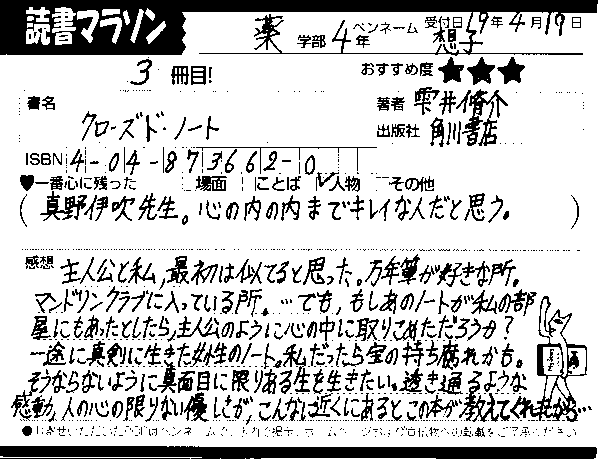 読書マラソン
薬 学部 4 年 ペンネーム 想子 受付日 19年4月19日
3 冊目!
おすすめ度 ★★★
書名 クローズド・ノート
著者 雫井脩介
出版社 角川書店
ISBN 4-04-873662-0
♥一番心に残った □場面 □ことば ☑人物 □その他
(真野伊吹先生。心の内の内までキレイな人だと思う。)
感想 主人公と私,最初は似てると思った。万年筆が好きな所。
マンドリンクラブに入っている所。…でも,もしあのノートが私の部
屋にもあったとしたら,主人公のように心の中に取りこめただろうか?
一途に真剣に生きた女性のノート。私だったら宝の持ち腐れかも。
そうならないように真面目に限りある生を生きたい。透き通るような
感動,人の心の限りない優しさが,こんなに近くにあると,この本が教えてくれたから…